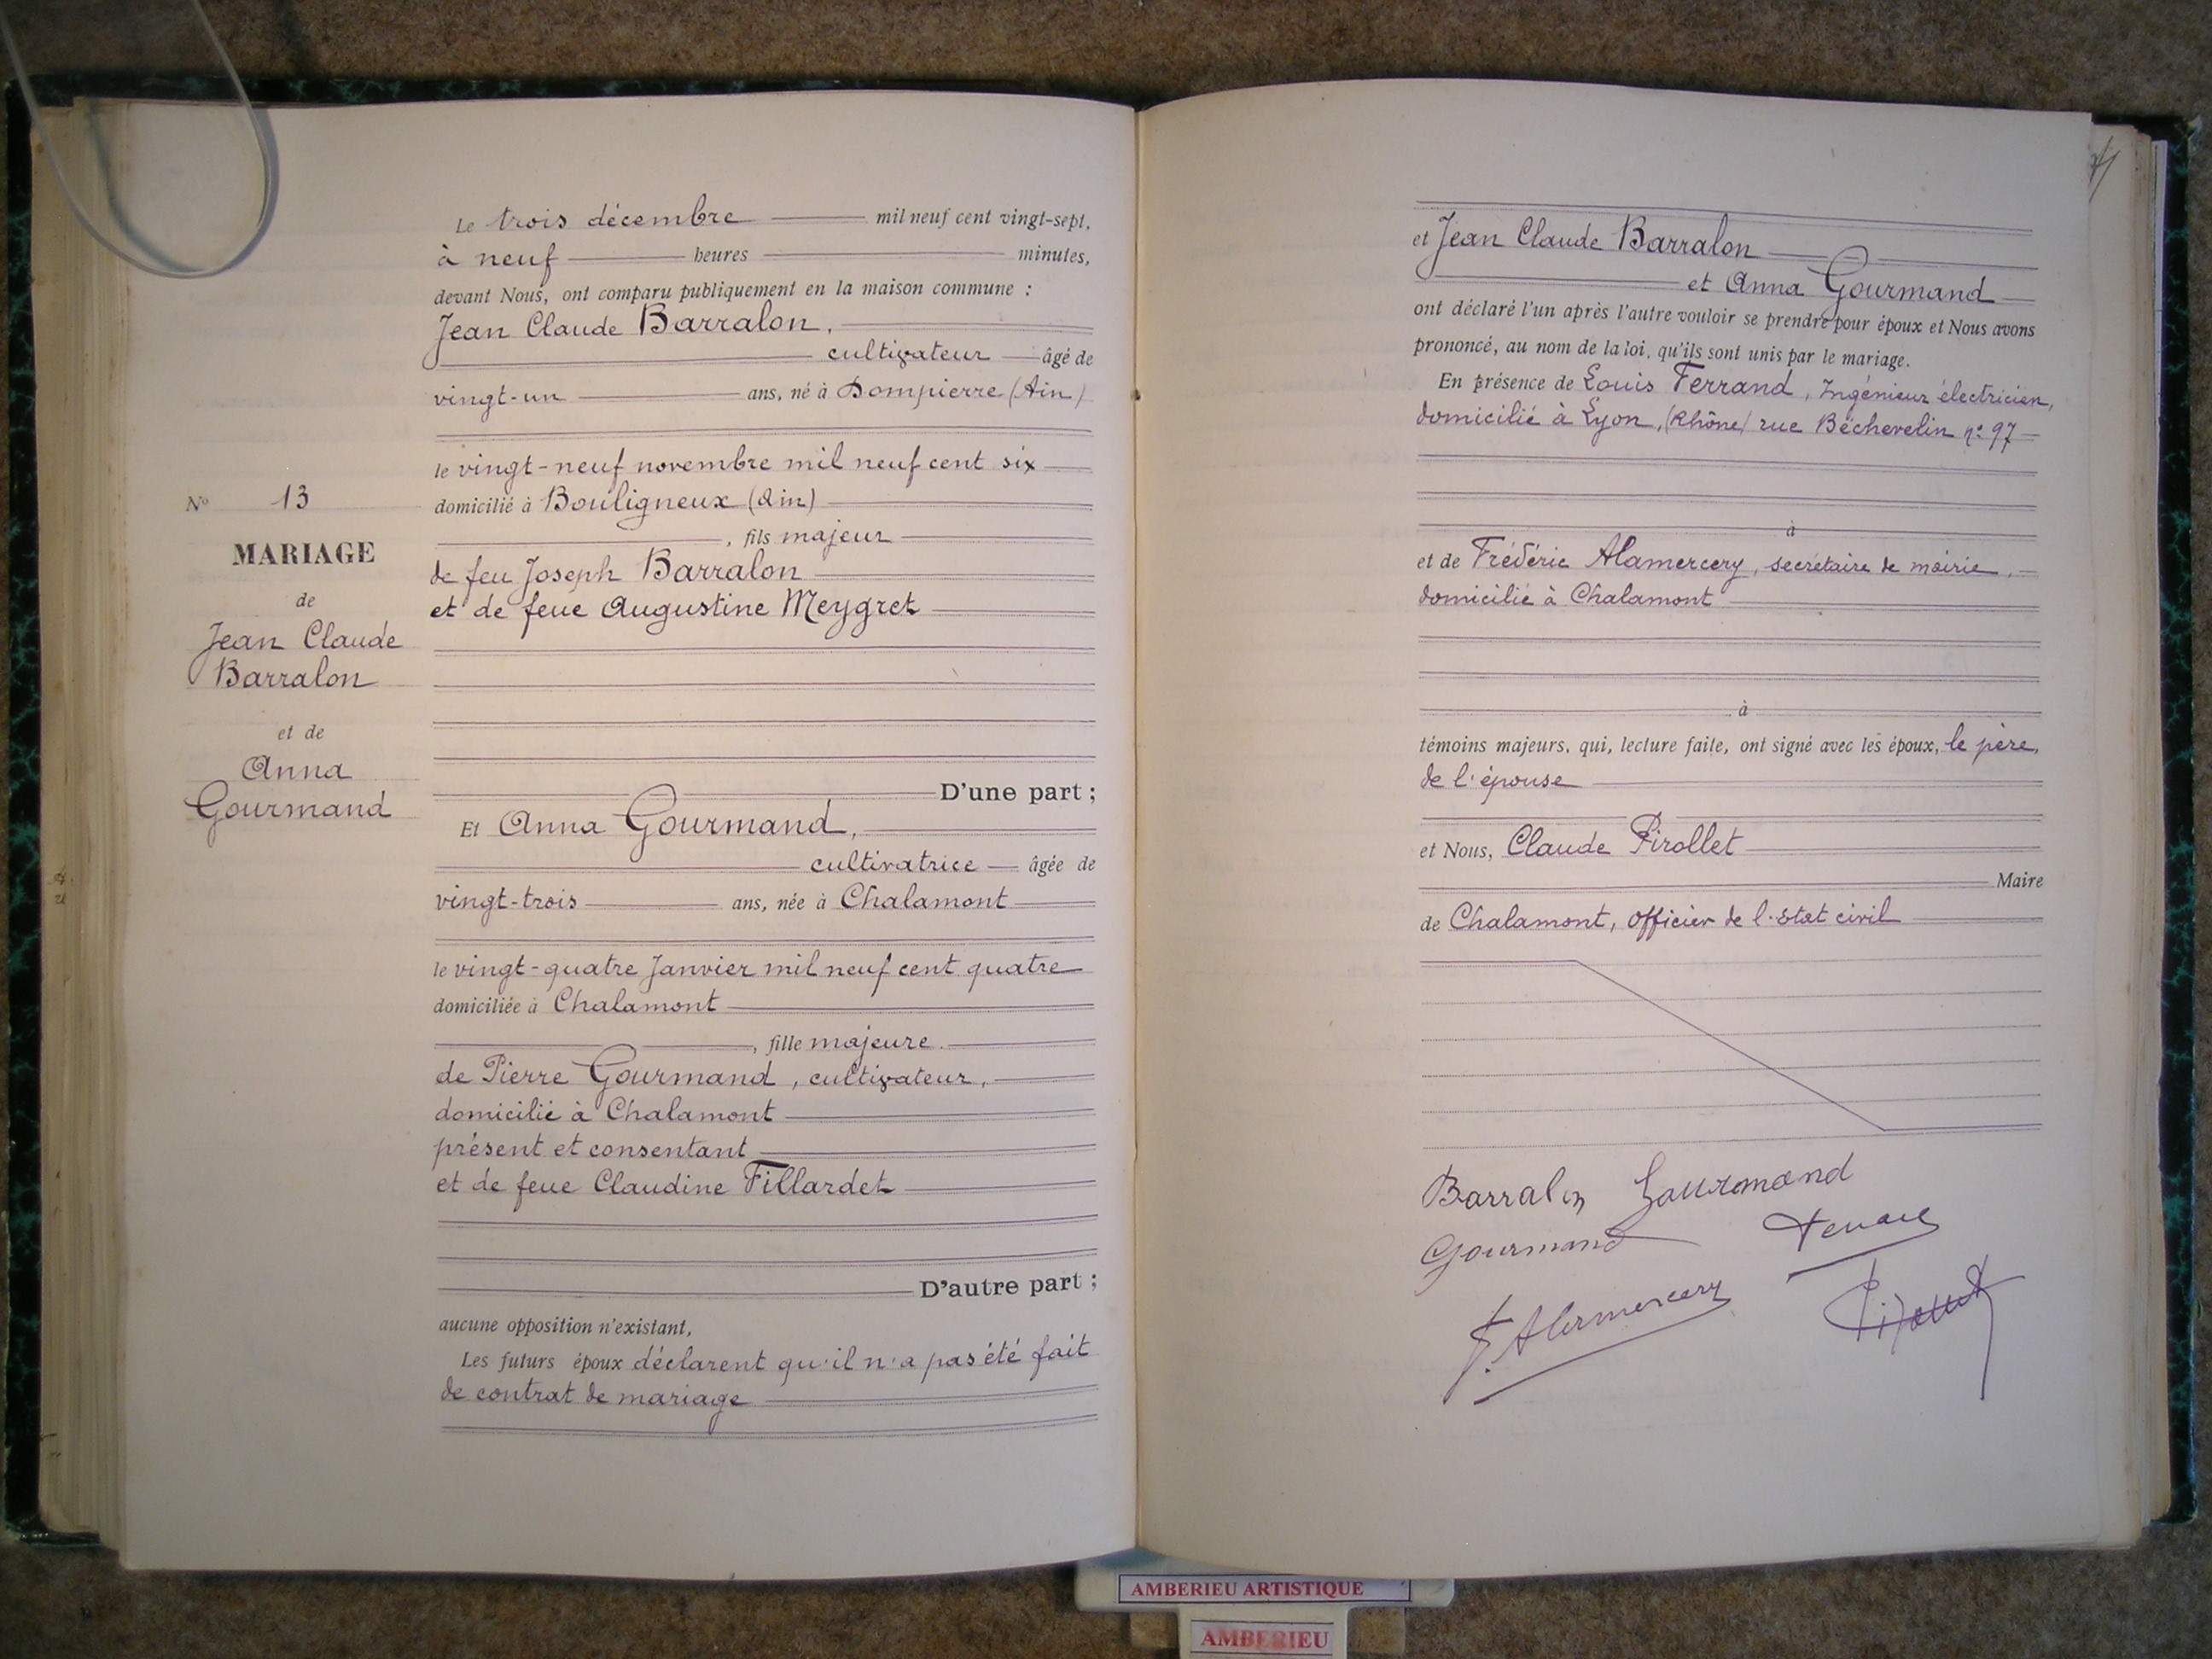 N° 13
MARIAGE
de
Jean Claude
Barralon
et de
Anna
Gourmand
Le trois décembre mil neuf cent vingt-sept,
à neuf heures minutes,
devant Nous, ont comparu publiquement en la maison commune :
Jean Claude Barralon,
cultivateur âgé de
vingt-un ans, né à Dompierre (Ain)
le vingt-neuf novembre mil neuf cent six
domicilié à Bouligneux (Ain)
, fils majeur
de feu Joseph Barralon
et de feue Augustine Meygret
D'une part ;
Et Anna Gourmand,
cultivatrice âgée de
vingt-trois ans, née à Chalamont
le vingt-quatre Janvier mil neuf cent quatre
domiciliée à Chalamont
, fille majeure
de Pierre Gourmand, cultivateur,
domicilié à Chalamont
présent et consentant
et de feue Claudine Fillardet
D'autre part ;
aucune opposition n'existant,
Les futurs époux déclarent qu'il n'a pas été fait
de contrat de mariage
et Jean Claude Barralon
et Anna Gourmand
ont déclaré l'un après l'autre vouloir se prendre pour époux et Nous avons
prononcé, au nom de la loi, qu'ils sont unis par le mariage.
En présence de Louis Ferrand, Ingénieur électricien,
domicilié à Lyon, (Rhône) rue Béchevelin n° 97
à
et de Frédéric Alamercery, secrétaire de mairie,
domicilié à Chalamont
à
témoins majeurs, qui, lecture faite, ont signé avec les époux, le père,
de l'épouse
et Nous, Claude Pirollet
Maire
de Chalamont, officier de l'état civil
Barralon Gourmand
Gourmand
F. Alamercery Pirollet
AMBERIEU ARTISTIQUE
AMBERIEU